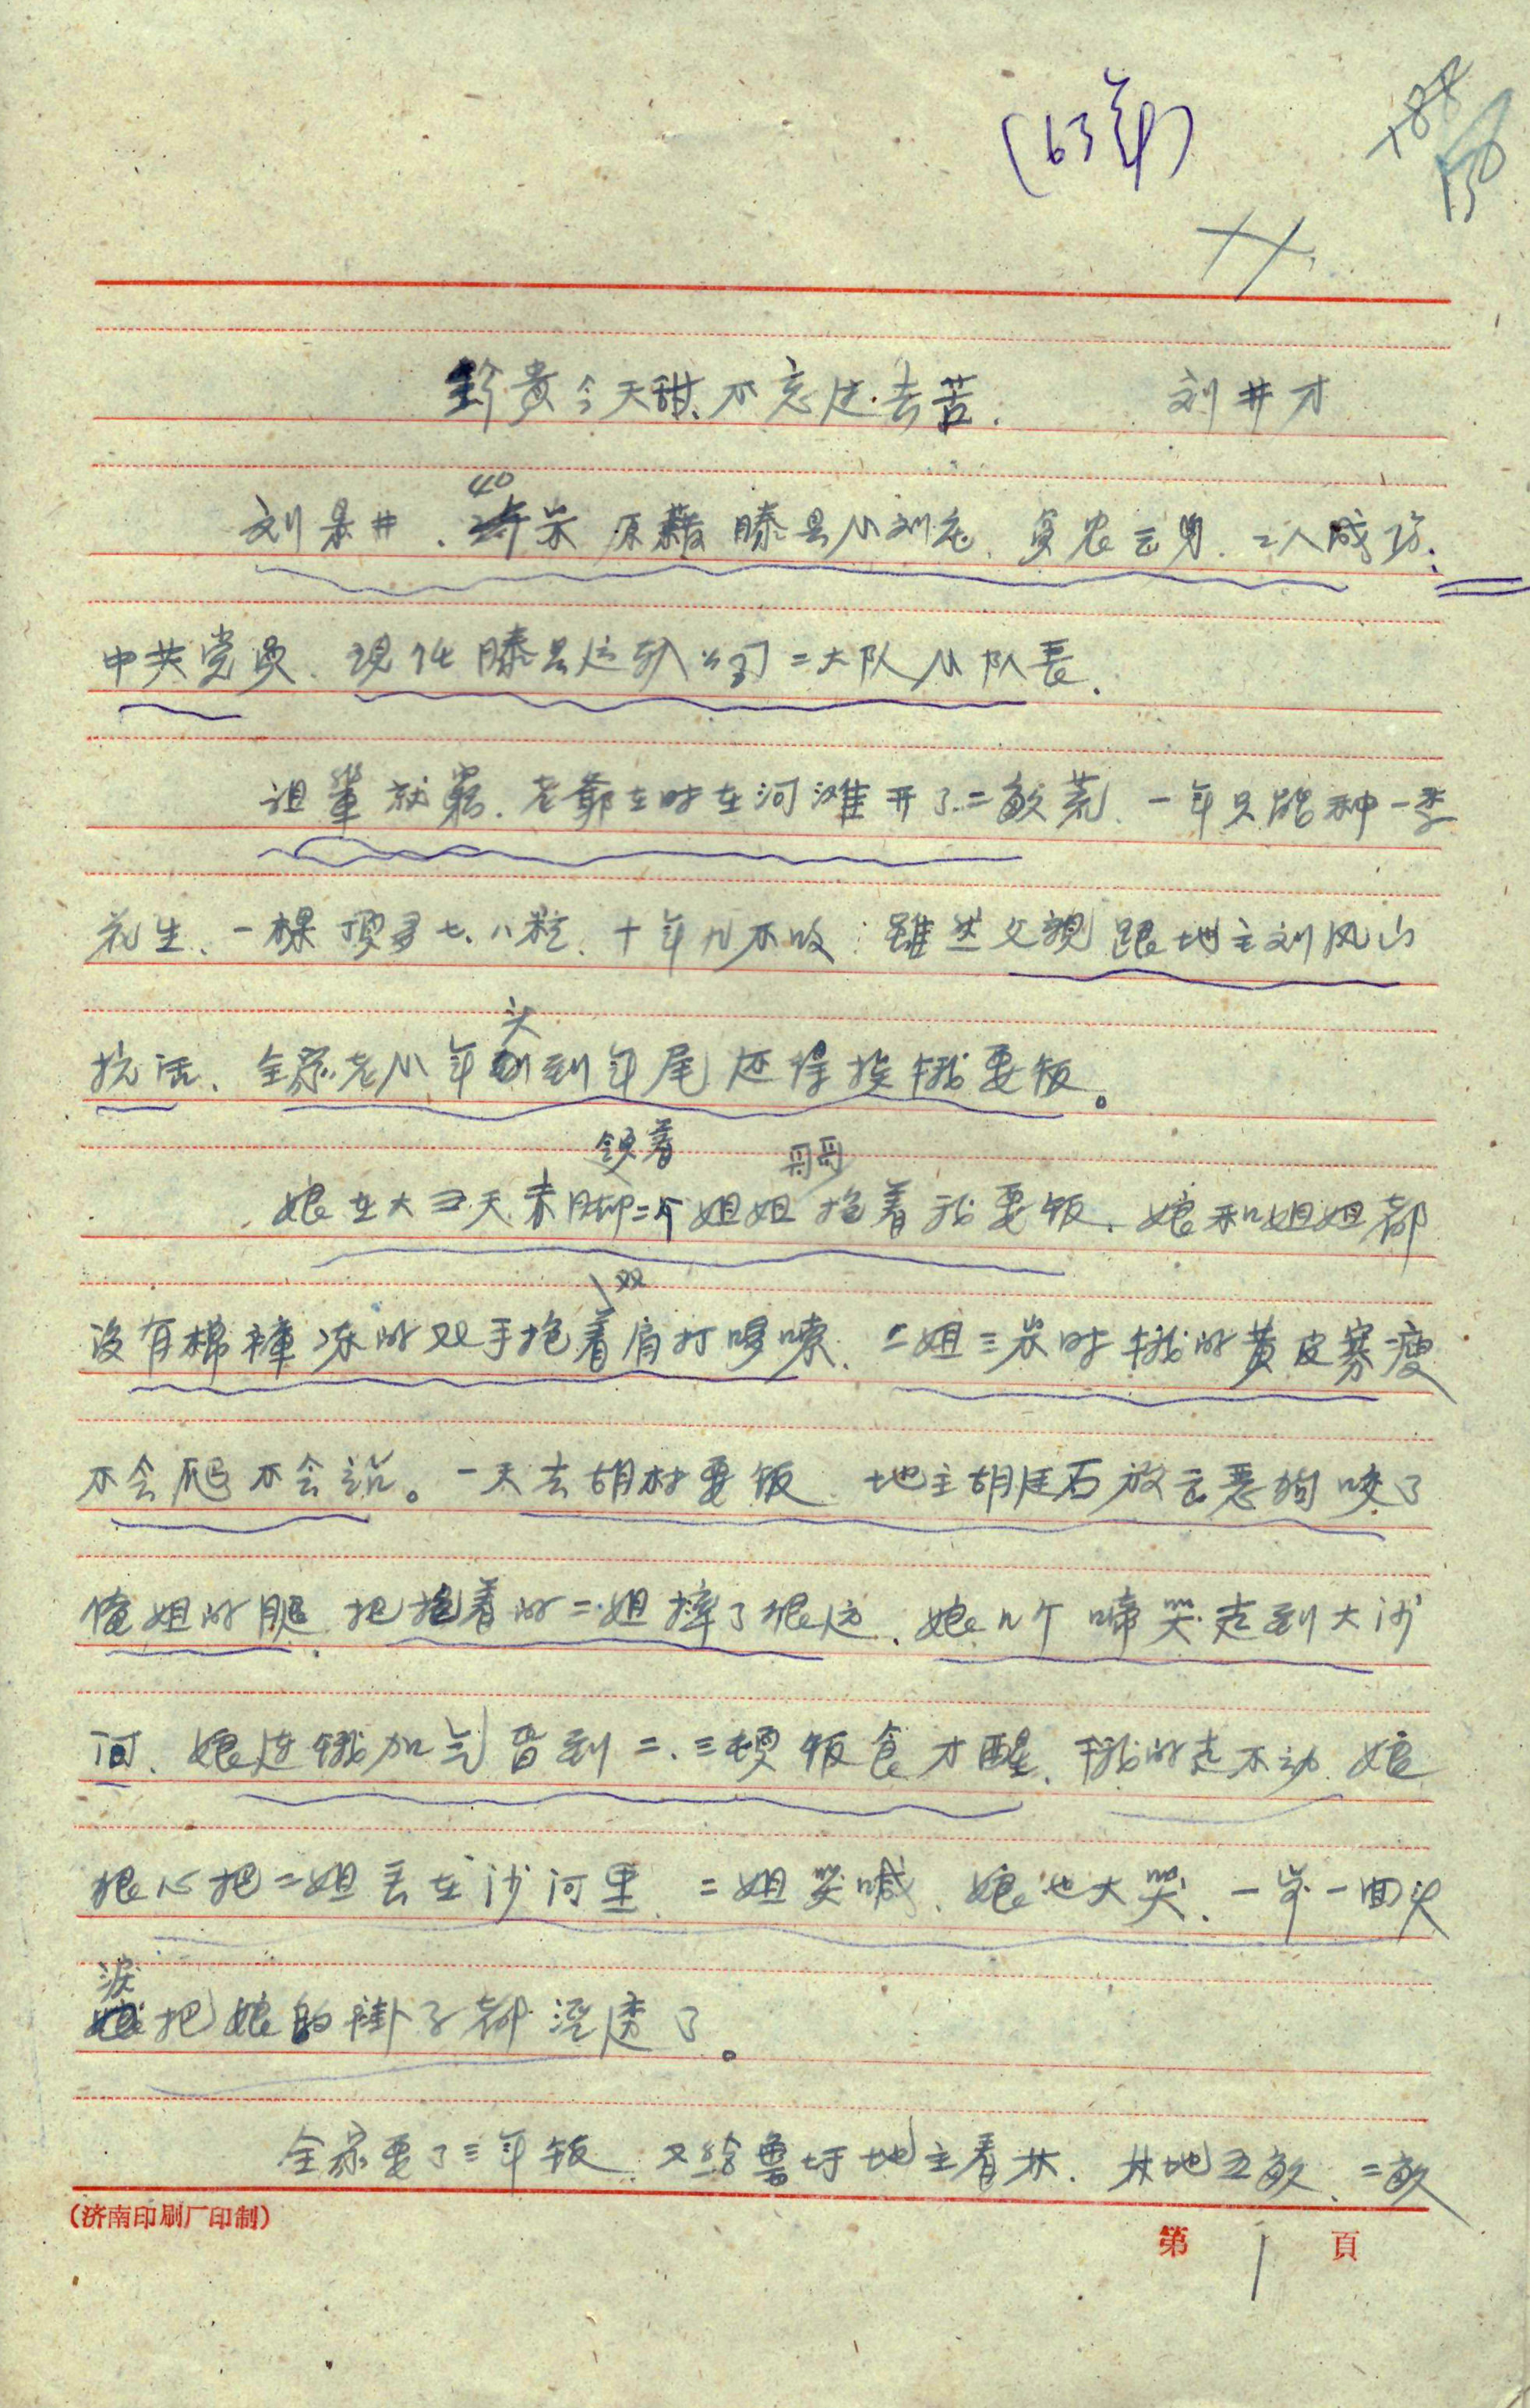 (63年)
珍贵今天甜、不忘过去苦. 刘井才
40
刘景井、岁 原藉滕县小刘庄、贫农云身、工人成份、
中共党员、現任滕县运输公司二大队小队長.
祖輩就窮、老爺在时在河滩开了二畝荒、一年只能种一季
花生、一棵頂多七、八粒、十年九不收；雖然父親跟地主刘风山
头
抗活、全家老小年到年尾还得挨饿要饭。
领着 哥哥
娘在大冬天赤脚二个姐姐抱着我要饭、娘和姐姐都
双
沒有棉褲冻的双手抱着肩打哆嗦、二姐三岁时饿的黄皮寡瘦
不会爬不会説。一天去胡村要饭 地主胡庄石放云恶狗咬了
俺姐的腿、把抱着的二姐摔了很远、娘几个啼哭走到大沙
河、娘连饿加气昏到二、三顿饭食才醒、饿的走不动、娘
狠心把二姐丢在沙河里、二姐哭喊、娘也大哭、一步一回头
淚
把娘的褂子都湿透了。
全家要了三年饭、又给魯圩地主看林、林地五畝、二畝
(济南印刷厂印制)
第 1 頁